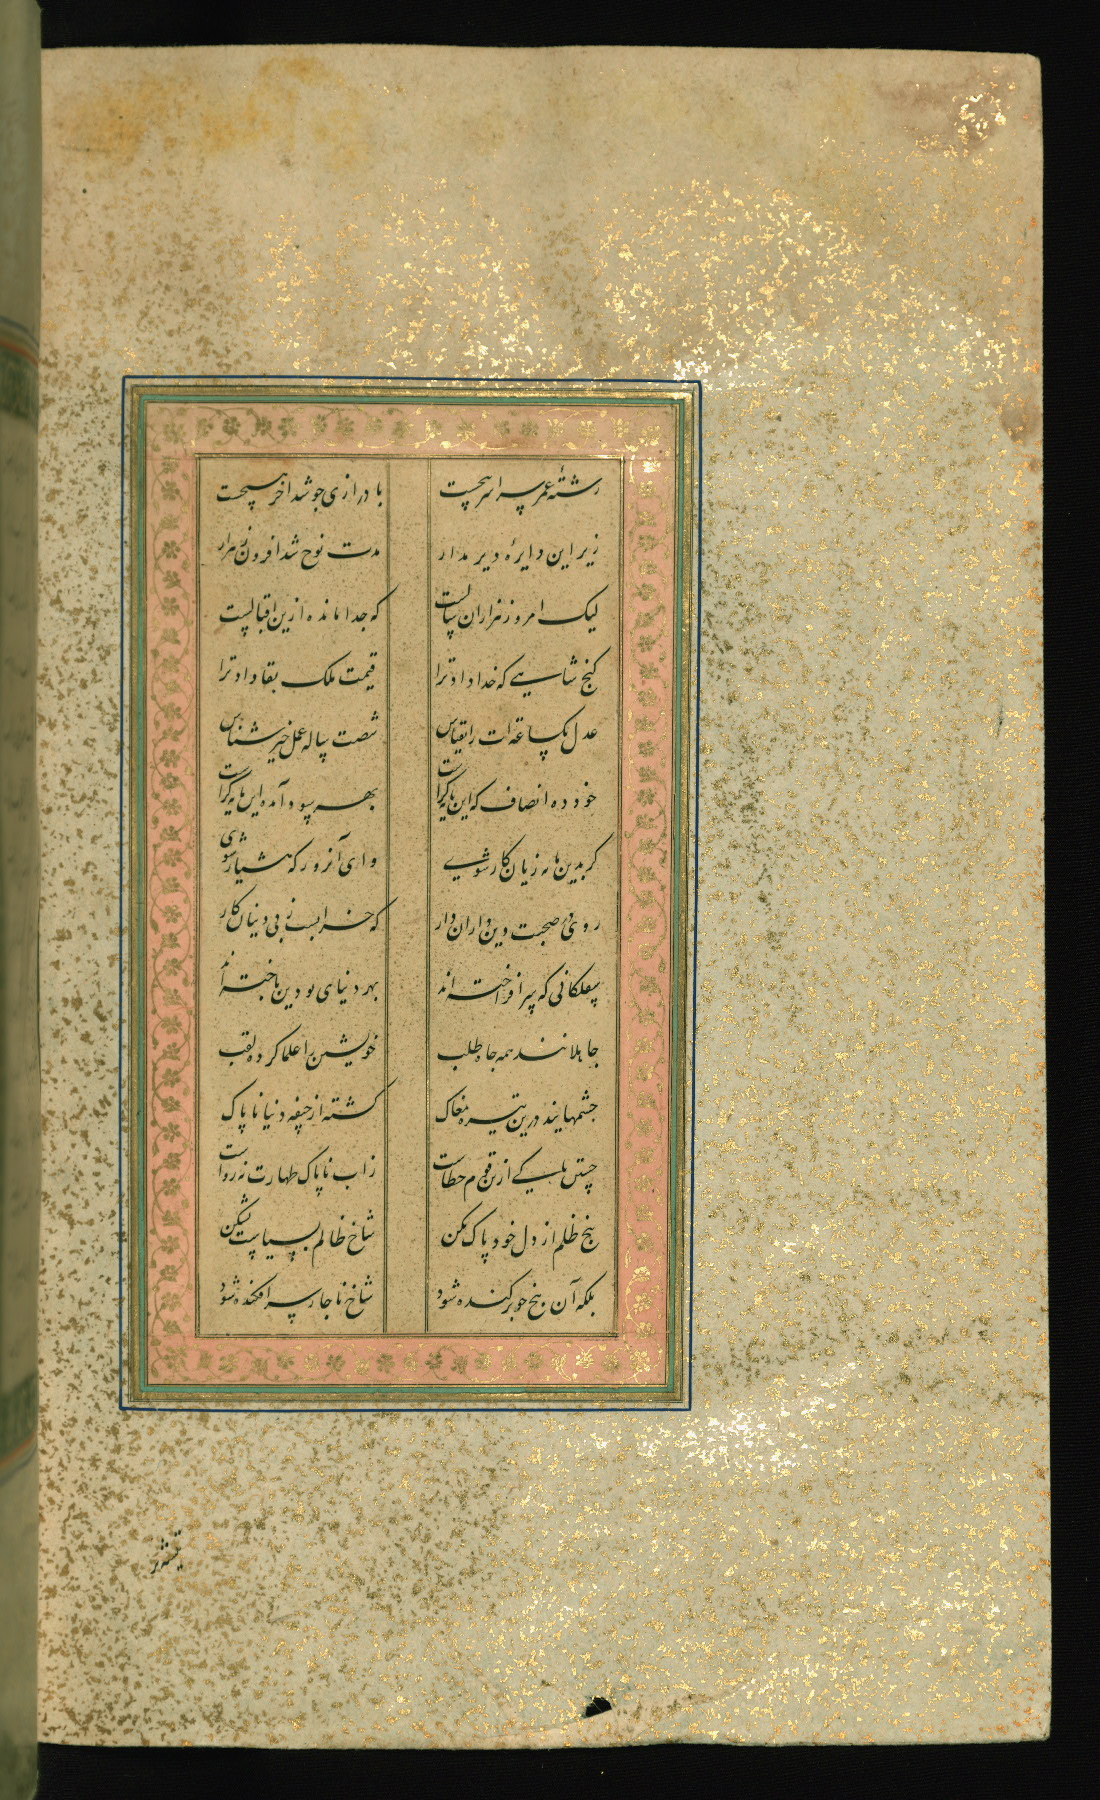 رشتهٔ عمر پسر اسر هیچست با درازی جو شد اخر هیچست
زیر این دایرهٔ دیر مدار مدت نوح شد افزون ز هزار
لیک امروز هزاران سالست که جدا مانده ازین اقبالست
کنج شاهیی که خدا داد ترا قیمت ملک بقا داد ترا
عدل یکساعته ات را بقیاس شصت ساله عمل خیر شناس
خود ده انصاف که این مایه کراست بهر سود آمده این مایه کراست
کر بدین مایه زیان کار شوی وای آنروز که هشیار شوی
روی در صحبت دین داران دار که خرابست ز بی دینان کار
سفلکانی که سر افراخته اند بهر دنیای تو دین باخته اند
جاهلانند همه جاه طلب خویشتن را علما کرده لقب
چشمهایند درین تیره مغاک کشته از جیفه دنیا ناپاک
جستن پاکی ازین قوم خطاست زاب ناپاک طهارت نه رواست
بیخ ظلم از دل خود پاک بکن شاخ ظالم بسیاست بشکن
بلکه آن بیخ جو برکنده شود شاخ ناجار سر افکنده شود